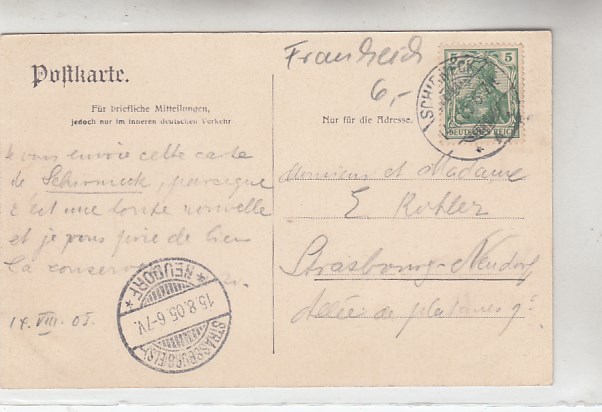 Postkarte.
Für briefliche Mitteilungen,
jedoch nur im inneren deutschen Verkehr
Je vous envoie cette carte
de Schirmeck, parceque
c'est une toute nouvelle
et je vous prie de bien
la conserver
14. VIII. 05.
Frankreich
6,-
5 5
DEUTSCHES REICH
SCHIRMECK
Nur für die Adresse.
Monsieur et Madame
E. Kohler
Strasbourg-Neudorf
Allée de platanes 9
* NEUDORF *
15.8.05 6-7V.
STRASSBURG (ELS.)